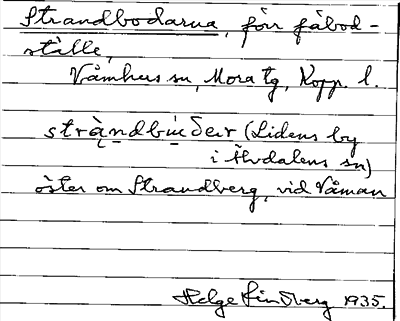 Strandbodarna, förr fäbod-
ställe,
Våmhus sn, Mora tg, Kopp. l.
strą̀ndbų́ðeır (Lidens by
i Älvdalens sn)
öster om Strandberg, vid Våman
Helge Lindberg 1935.